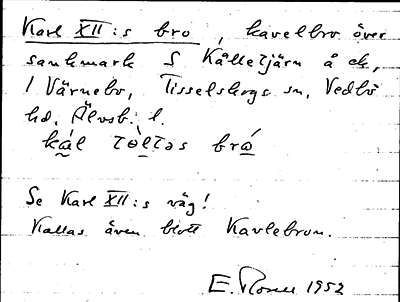 Karl XII:s bro, kavelbro över
sankmark S Kålletjärn å ek,
1 Värnebo, Tisselskogs sn, Vedbo
hd. Älvsb. l.
kál tòltəs brǻ
Se Karl XII:s väg!
Kallas även blott Kavlebron.
E. Rosell 1952